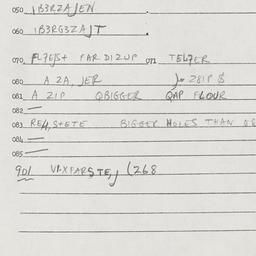 050 IB3RZAJEN
060 IB3RG3ZAJT
070 FL7EJS+ FARDIZUP 071 TEL7ER
080 A ZA, JER Z81P $
081 A ZIP QBIGGER QAP FLOUR
082 —
083 RE4,S+ETE BIGGER HOLES THAN OR
084 —
085 —
901 (268